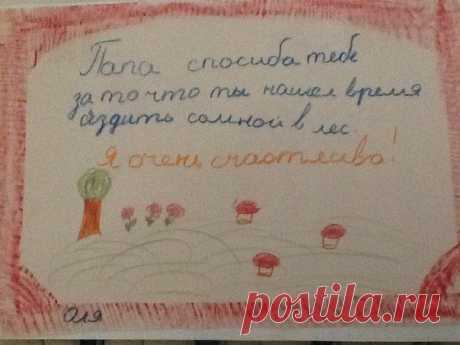 Папа спосиба тебе
за то что ты нашел время
сездить сомной в лес.
Я очень счастлива!
Оля
postila.ru